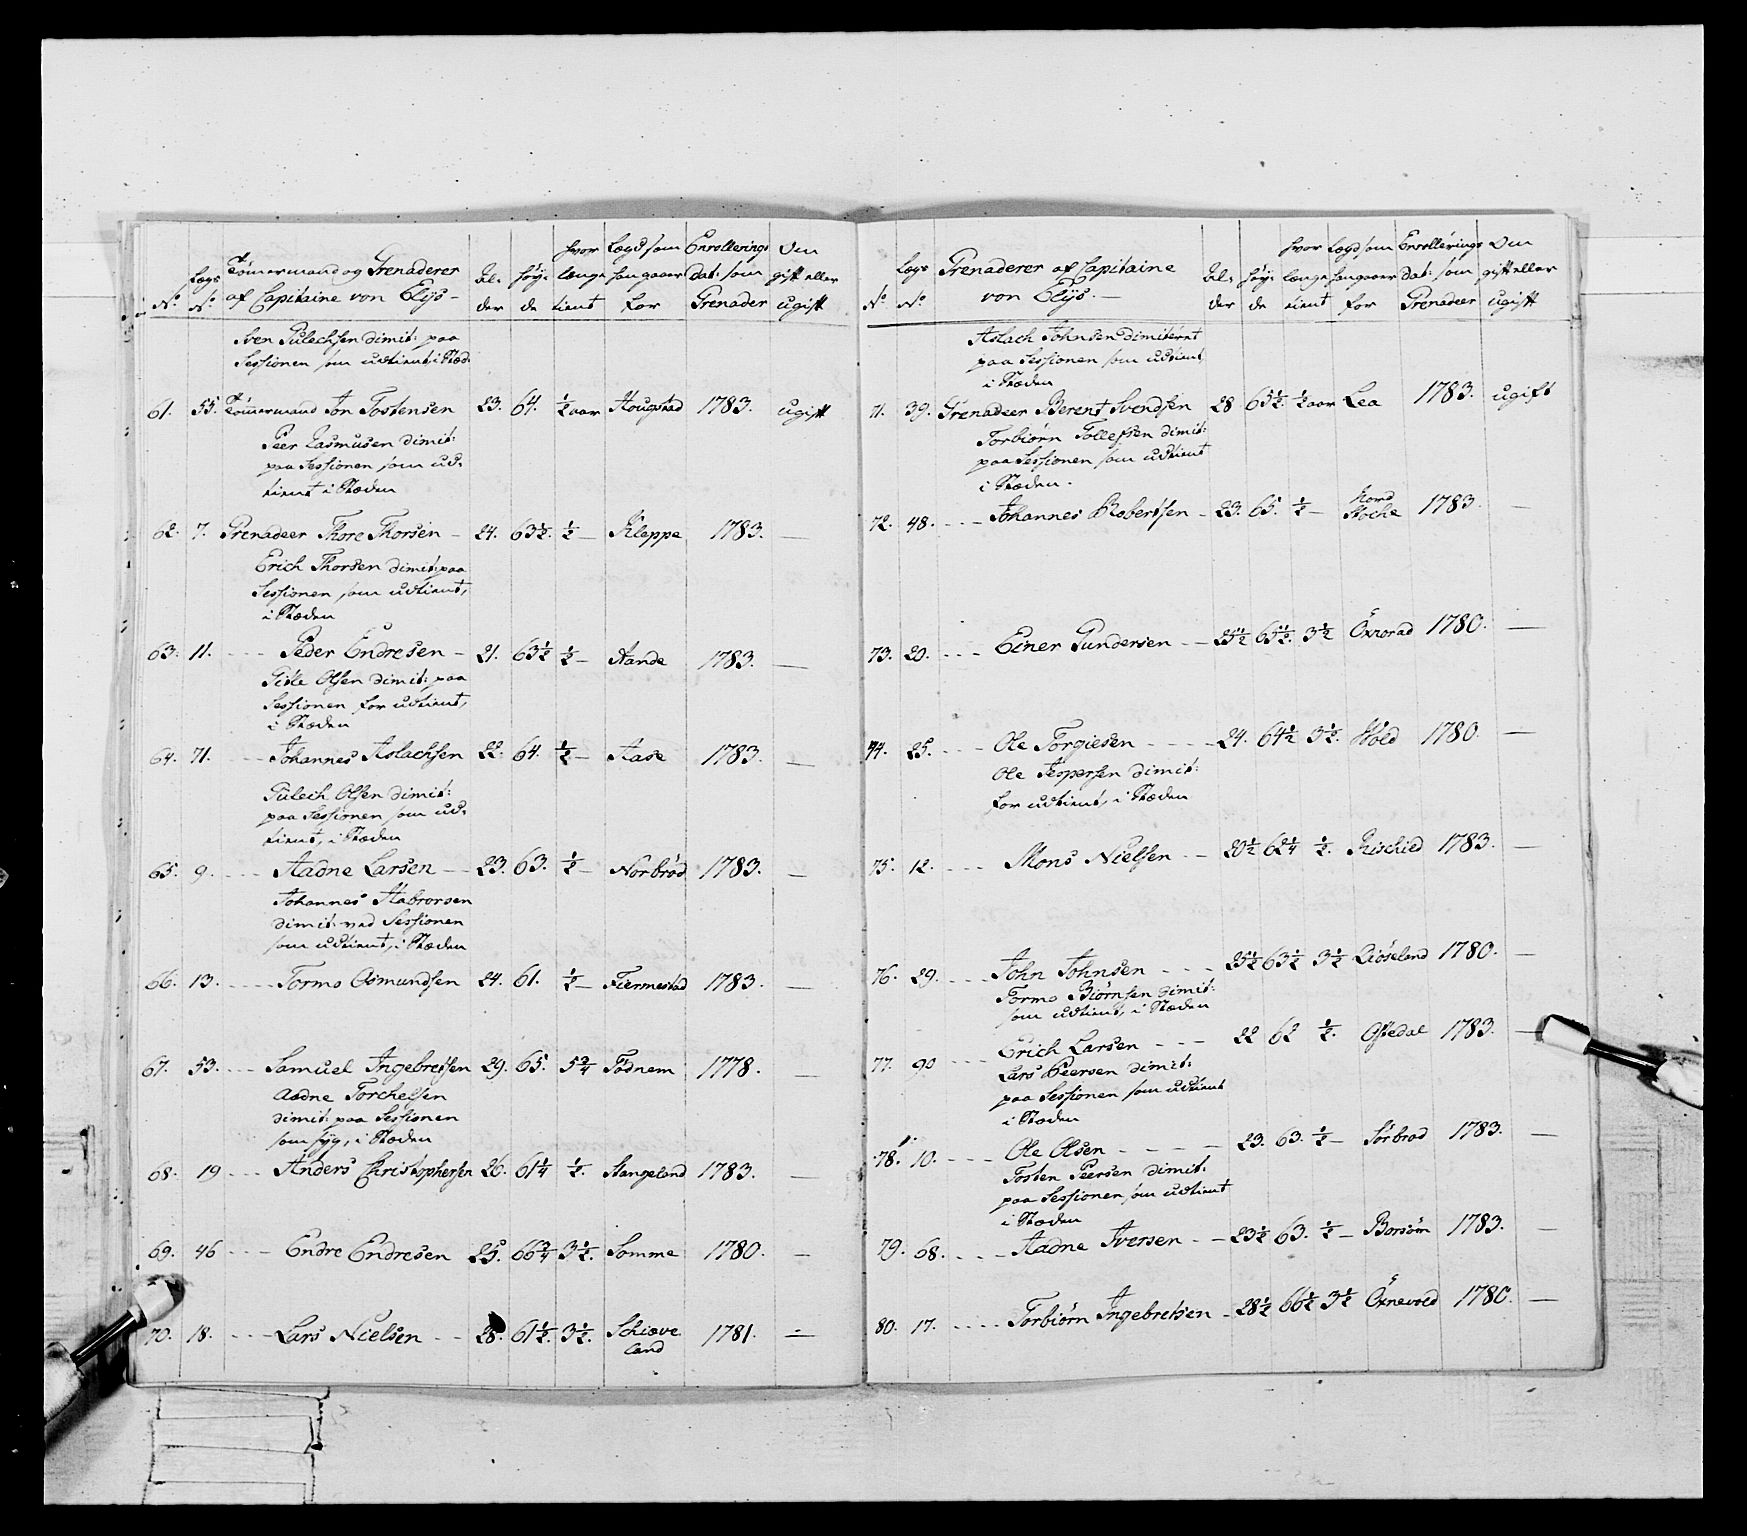 No. Lægs No. Tömermand og Grenaderer af Capitaine von Elÿs Al-der Höye-de hvor længe tient Lægd som han gaaer for Enrollerings Dat: som Grenader Om gift eller ugift
Sven Gulechsen dimit: paa
Sessionen som udtient, i Stæd:
61. 55. Tömermand Jon Tostensen 23. 64. ½ aar Hougstad 1783. ugift
Peer Rasmusen dimit:
paa Sessionen som ud-
tient i Stæden
62. 7. Grenadeer Thore Thorsen 24. 63½. ½ Kleppe 1783. —
Erich Thorsen dimit: paa
Sessionen som udtient,
i Stæden
63. 11. Peder Endresen 21. 63½ ½ Aande 1783. —
Gitle Olsen dimit: paa
Sessionen for udtient,
i Stæden
64. 71. Johannes Aslachsen 22. 64. ½ Aase 1783. —
Gulech Olsen dimit:
paa Sessionen som ud-
tient, i Stæden
65. 9. Aadne Larsen 23. 63. ½ Norbröd 1783. —
Johannes Habrorsen
dimit: ved Sessionen
som udtient, i Stæden
66. 13. Tormo Osmundsen 24. 61. ½ Fiermestad 1783. —
67. 53. Samuel Ingebretsen 29. 65. 5¾ Födnem 1778. —
Aadne Torchelsen
dimit: paa Sessionen
som syg, i Stæden
68. 19 Anders Christophersen 26. 61¼ ½. Stangeland 1783. —
69. 46 Endre Endresen 25. 66¾ 3½. Somme 1780. —
70. 18. Lars Nielsen 28. 61½. 3½. Schiæve land 1781. —
No. Lægs No. Grenaderer af Capitaine von Elÿs. Al-der Höye-de hvor længe tient Lægd som han gaaer for Enrollerings Dat: som Grenadeer Om gift eller ugift
Aslach Johnsen dimiteret
paa Sessionen som udtient
i Stæden
71. 39. Grenadeer Berent Svendsen 28 65½. ½ aar Lea 1783. ugift
Torbiörn Tollefsen dimit:
paa Sessionen som udtient
i Stæden.
72. 48. Johannes Robertsen 23. 65. ½ Nord Stoche 1783. —
73. 20. Einer Gundersen 25½ 65½. 3½ Öxrorad 1780. —
74. 25. Ole Torgiesen 24. 64½ 3½. Höld 1780. —
Ole Jespersen dimit:
for udtient, i Stæden
75. 12. Mons Nielsen 20½ 62¼ ½. Rischied 1783. —
76. 29. John Johnsen 25½ 63½ 3½ Qiöseland 1780. —
Tormo Biörnsen dimit:
som udtient, i Stæden
77. 90 Erich Larsen 22 62 ½. Ofstedal 1783. —
Lars Peersen dimit:
paa Sessionen som udtient
i Stæden
78. 10. Ole Olsen 23. 63. ½ Sörbrod 1783. —
Tosten Peersen dimit:
paa Sessionen, som udtient
i Stæden
79. 68. Aadne Iversen 23½ 63. ½ Borsöm 1783. —
80. 17. Torbiörn Ingebretsen 28½ 66½ 3½ Öxnevold 1780. —